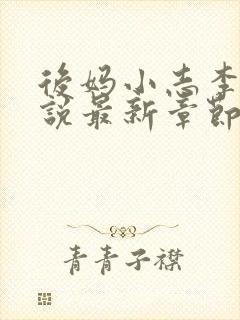 後妈小志李
說最新章節
青青子襟